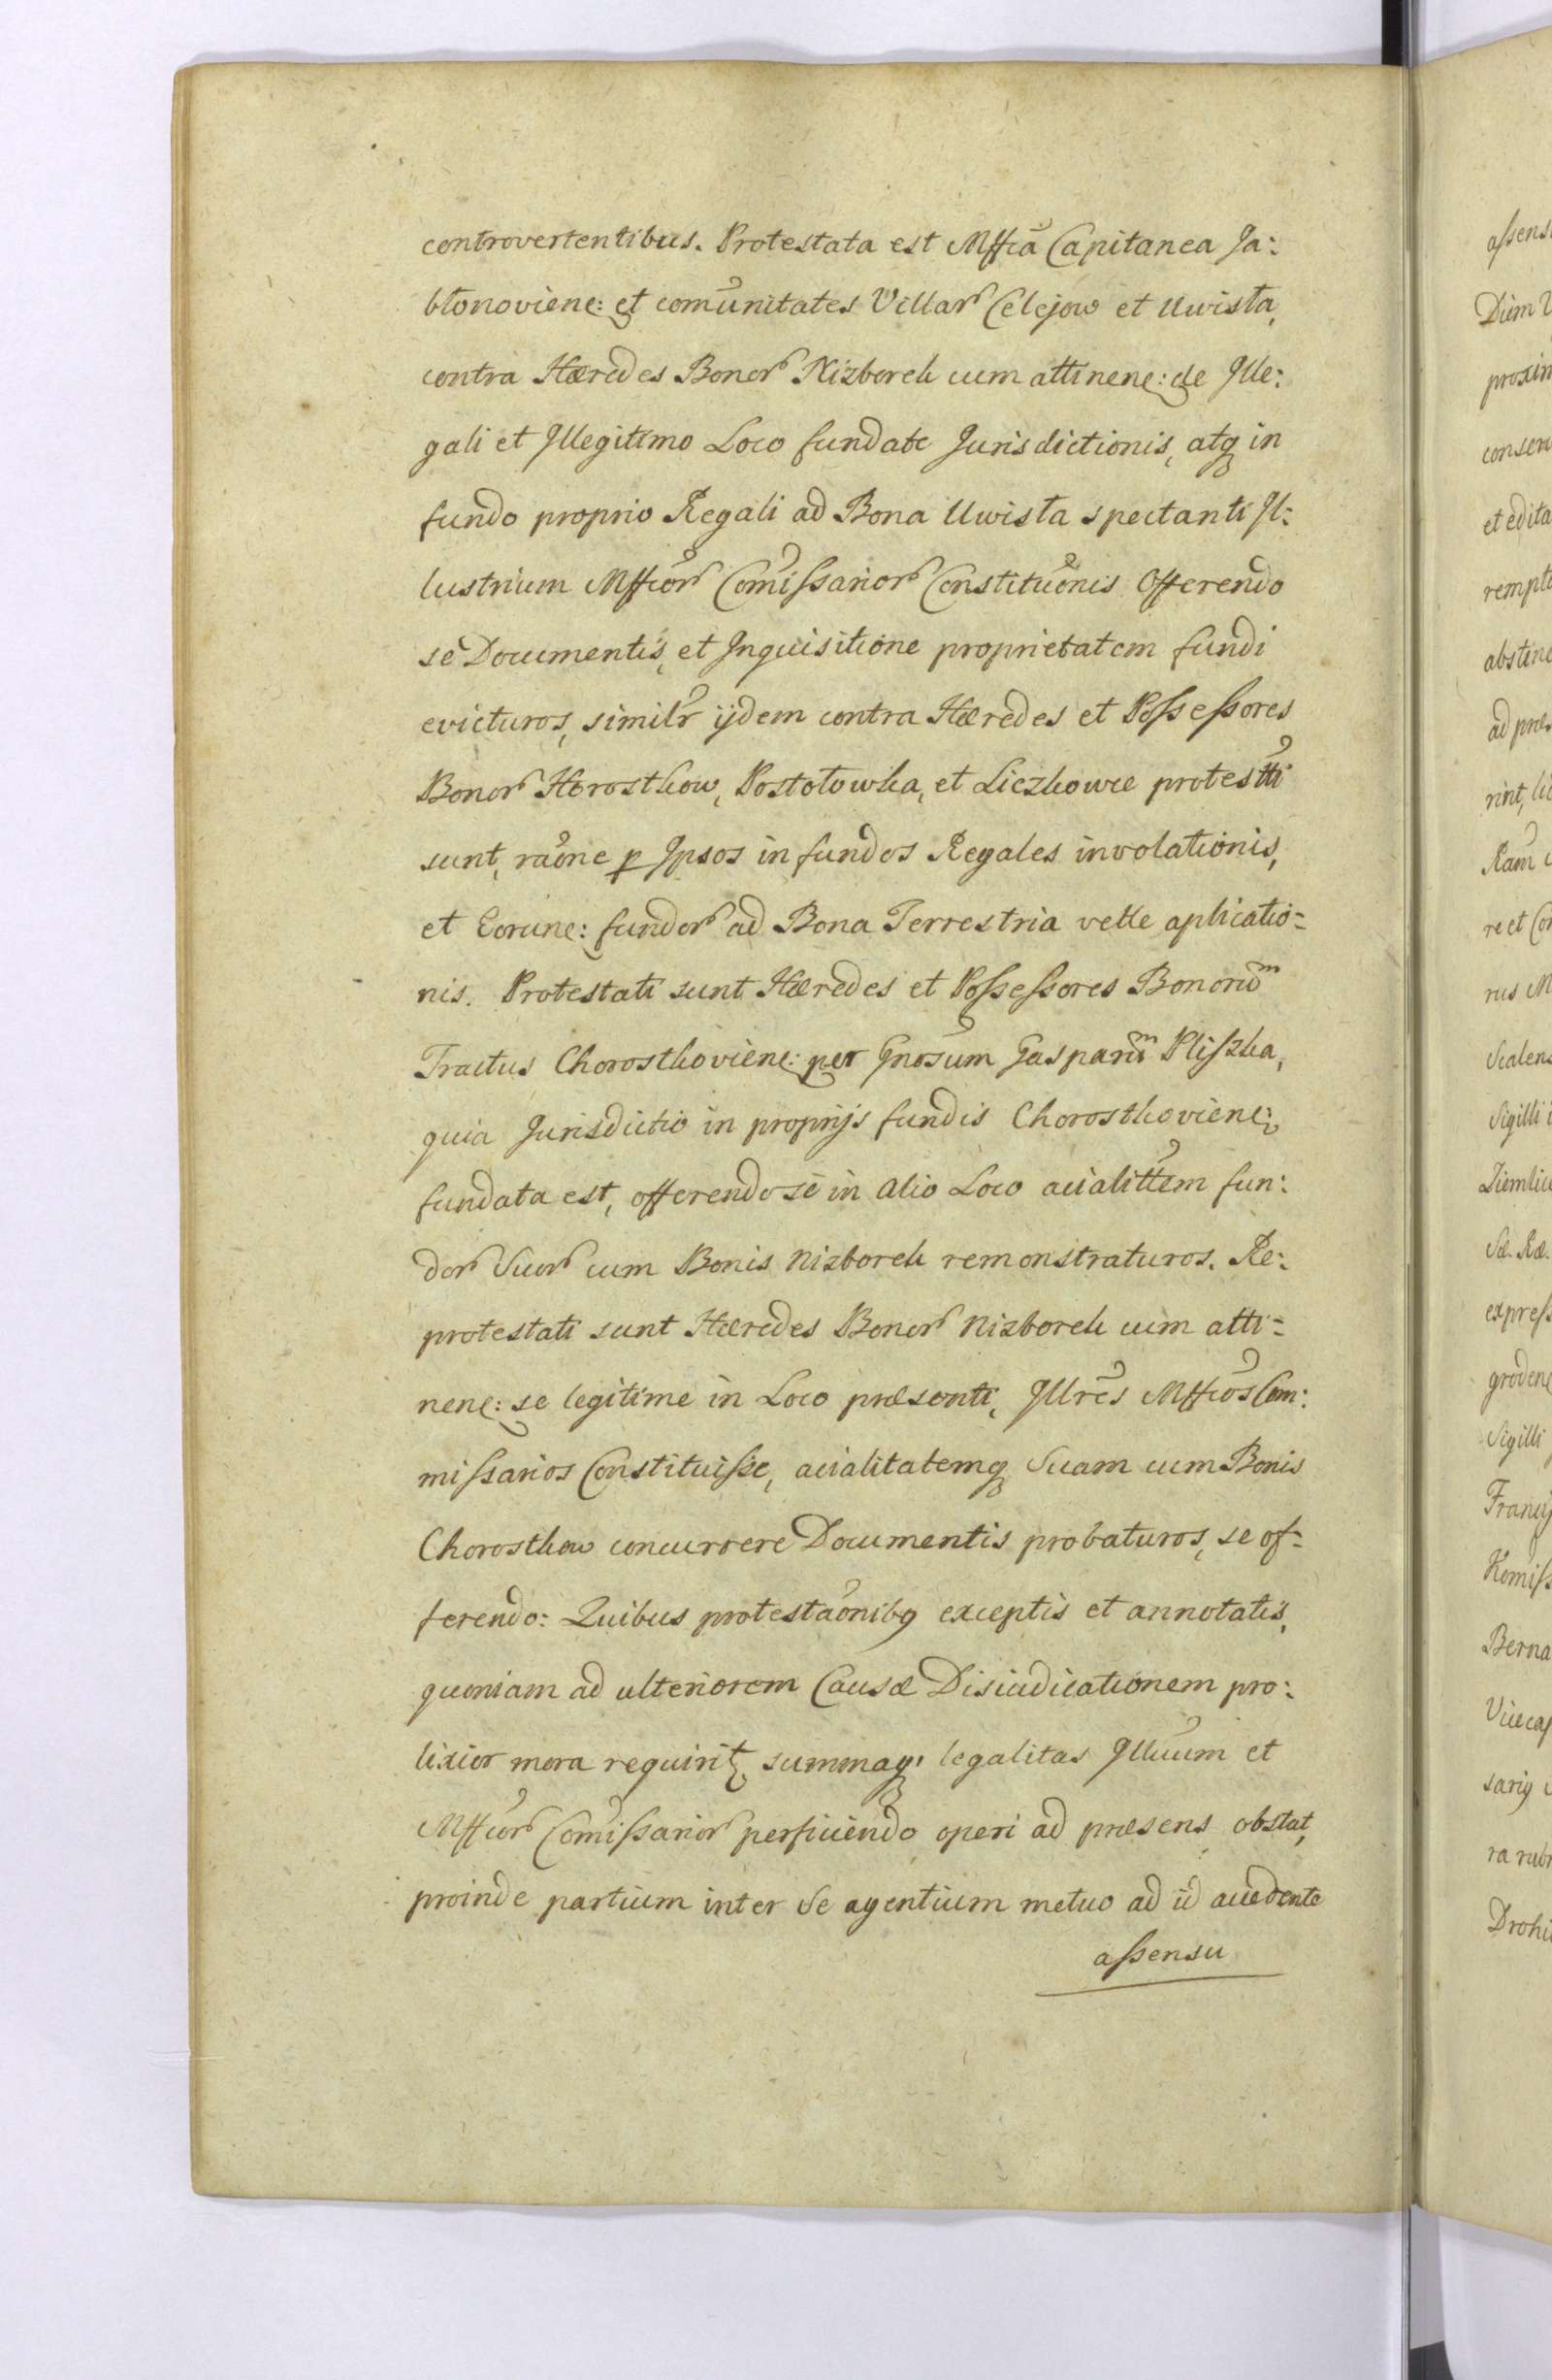 controvertentibus. Protestata est Mffca Capitanea Ja:
błonoviene: et comunitates Villar Celejow et Uwisła,
contra Hæredes Bonor Nizborek cum attinene: de Ille:
gali et Illegitimo Loco fundatæ Jurisdictionis, atq in
fundo proprio Regali ad Bona Uwisła spectanti Il:
lustrium Mffcor Comissarior Constitutionis Offerendo
se Documentis, et Inquisitione proprietatem fundi
evicturos, similr ijdem contra Hæredes et Possessores
Bonor Horostkow, Postołowka, et Liczkowce protestti
sunt, raone p Ipsos in fundos Regales involationis,
et Eorunc: fundor ad Bona Terrestria velle aplicatio=
nis. Protestati sunt Hæredes et Possessores Bonorum
Tractus Chorostkoviene: per Gnosum Gasparum Pliszka,
quia Jurisdictio in proprijs fundis Chorostkoviene:
fundata est, offerendo se in alio Loco acialittem fun:
dor Suor cum Bonis Nizborek remonstraturos. Re:
protestati sunt Hæredes Bonor Nizborek cum atti=
nene: se legitime in Loco præsenti, Illres Mffcos Com:
missarios Constituisse, acialitatemq Suam cum Bonis
Chorostkow concurrere Documentis probaturos, se of=
ferendo: Quibus protestaonibq exceptis et annotatis,
quoniam ad ulteriorem Causæ Disiudicationem pro:
lixior mora requirit, summaq, legalitas Illuum et
Mffcor Comissarior perficiendo operi ad præsens obstat,
proinde partium inter Se agentium metuo ad id accedente
assensu
assens
Diem
proxim
consen
et edita
rempt
abstine
ad præs
rint, li
Ram
re et Con
rus M
Scalens
Sigilli i
Ziemlic
Sæ. Ræ.
express
grodene
Sigilli
Francij
Komiss
Berna
Vicecap
sariq
ra rubr
Drohi